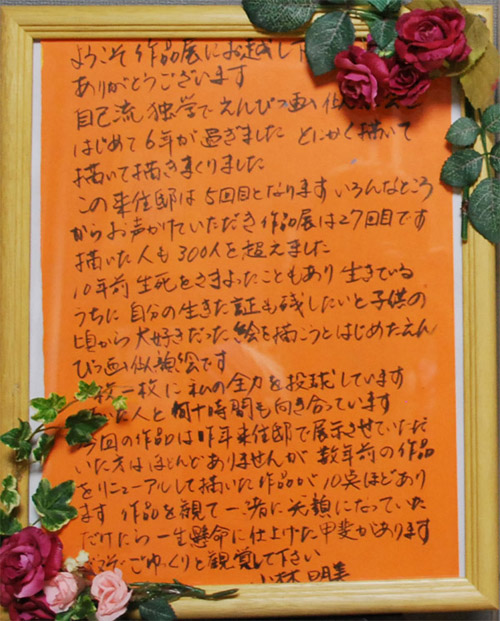 ようこそ作品展にお越し下
ありがとうございます
自己流 独学でえんぴつ画 似
はじめて6年が過ぎました とにかく描いて
描いて描きまくりました
この来住邸は5回目となります いろんなところ
からお声がけていただき作品展は27回目です
描いた人も300人を超えました
10年前 生死をさまよったこともあり 生きている
うちに 自分の生きた証も残したいと子供の
頃から大好きだった絵を描こうとはじめたえん
ぴつ画似顔絵です
枚一枚に私の全力を投球しています
いた人と何十時間も向き合っています
今回の作品は昨年来住邸で展示させていただ
いた方はほとんどありませんが 数年前の作品
をリニューアルして描いた作品が10点ほどあり
ます 作品を観て一緒に笑顔になっていた
だけたら一生懸命に仕上げた甲斐があります
ごゆっくりと観覧して下さい
小林 明美